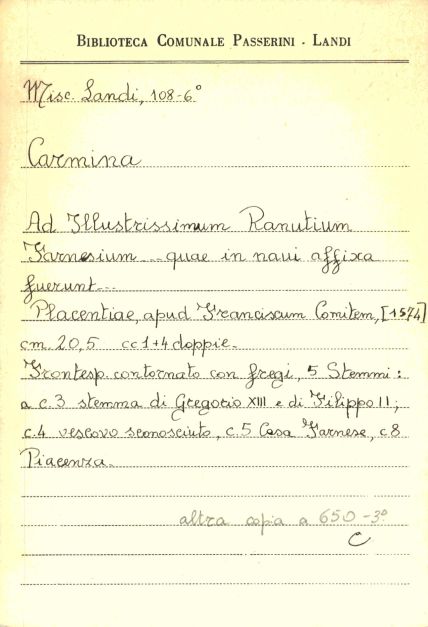 BIBLIOTECA COMUNALE PASSERINI - LANDI
Misc. Landi, 108-6°
Carmina
Ad Illustrissimum Ranutium
Farnesium ... quae in navi affixa
fuerunt...
Placentiae, apud Franciscum Comitem, [1574]
cm. 20,5 cc 1+4 doppie.
Frontesp. contornato con fregi, 5 Stemmi:
a c.3 stemma di Gregorio XIII e di Filippo II;
c.4 vescovo sconosciuto, c.5 Casa Farnese, c.8
Piacenza.
altra copia a 650-3°
C